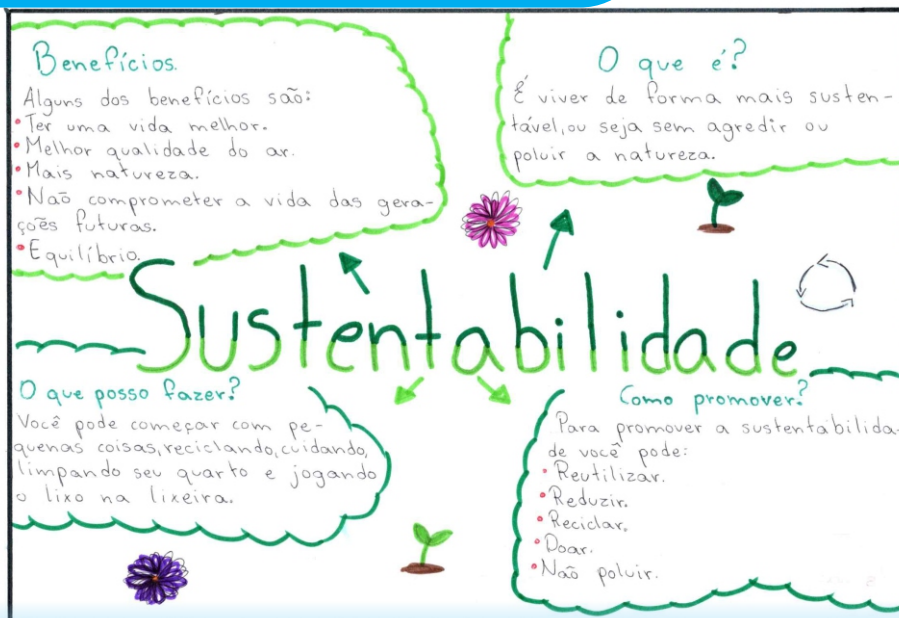 Benefícios.
Alguns dos benefícios são:
• Ter uma vida melhor.
• Melhor qualidade do ar.
• Mais natureza.
• Não comprometer a vida das gera-
ções futuras.
• Equilíbrio.
O que é?
É viver de forma mais susten-
tável, ou seja sem agredir ou
poluir a natureza.
Sustentabilidade
O que posso fazer?
Você pode começar com pe-
quenas coisas, reciclando, cuidando,
limpando seu quarto e jogando
o lixo na lixeira.
Como promover?
Para promover a sustentabilida-
de você pode:
• Reutilizar.
• Reduzir.
• Reciclar.
• Doar.
• Não poluir.